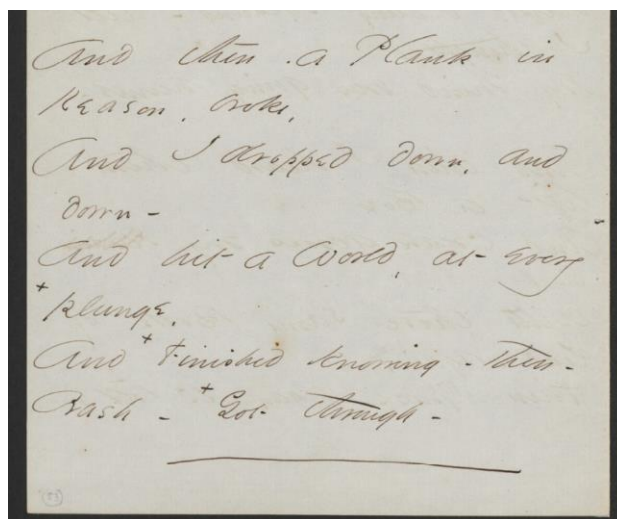 And then a Plank in
Reason, broke,
And I dropped down, and
down -
And hit a World, at every
+
plunge,
And + Finished knowing - then -
Crash - + Got through -